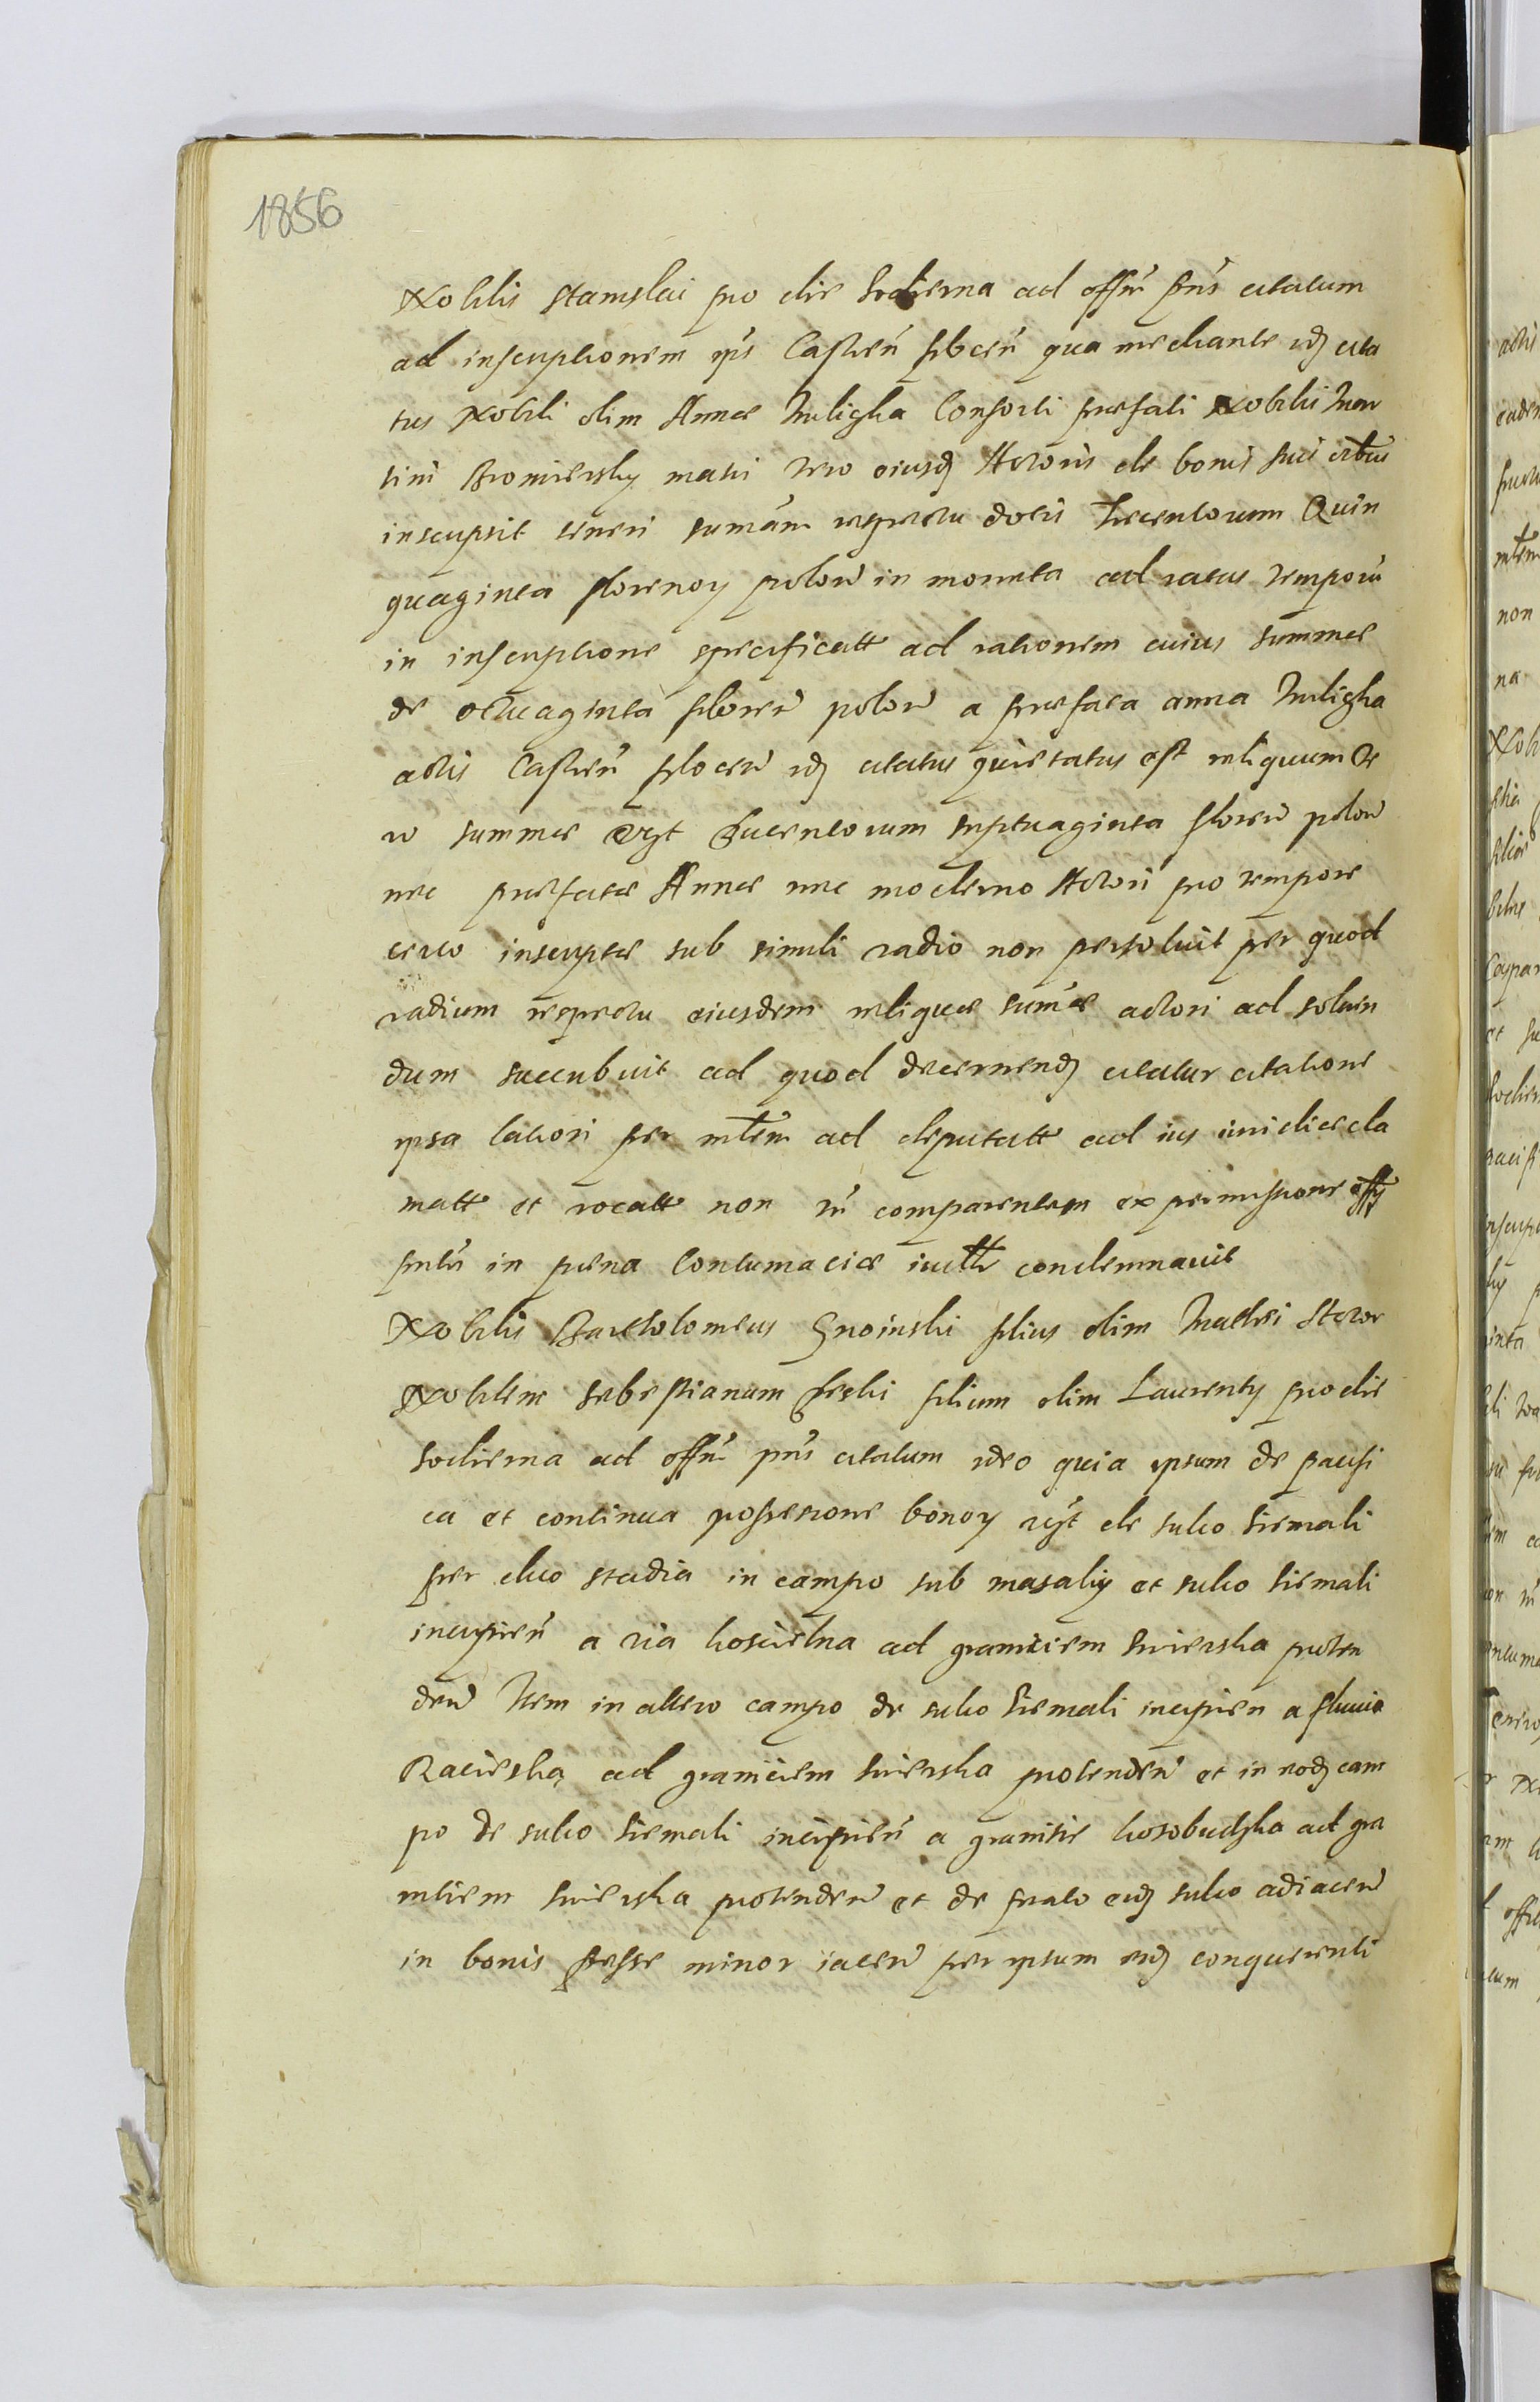 1856
Nobilis Stanislai pro die hodierna ad offm pns citatum
ad inscriptionem ips Castren plocen qua mediante idq cita
tus Nobili olim Annae Miliska Consorti praefati Nobilis Mar
tini Bromiersky matri vero eiusdq Actoris de bonis suis
inscripsit teneri sumam respectu dotis trecentorum Quin
quaginta florenoy polon in moneta ad ratas temporu
in inscriptione specificatt ad rationem cuius summae
de octuaginta floren polon a praefata anna Miliska
actis Castren plocen idq citatus quietatus est reliquum ve
ro summae ducentorum septuaginta floren polon
nec praefatae Annae nec moderno Actori pro tempore
certo inscriptae sub simili vadio non persoluit per quod
vadium respectu eiusdem reliquae sumae actori ad soluen
dum succubuit ad quod decernendq citatur citatione
ipsa latiori per mtem ad deputatt ad ius iuridice cla
matt et vocatt non tn comparentem ex permissione offy
pntis in poena Contumaciae iudtr condemnauit
Nobilis Bartolomeus Gnoinski filius olim Mathei Actor
Nobilem Sebestianum filium olim Laurenty pro die
hodierna ad offm pns citatum ideo quia ipsum de pacifi
ca et continua possesione bonoy de sulco hiemali
per duo stadia in campo sub masaly et sulco hiemali
incipien a via koscielna ad graniciem swierska proten
den Item in altero campo de sulco hiemali incipien a fluuio
Racieska ad graniciem swierska protenden et in eodq cam
po de sulco hiemali incipien a granitie kosobudska ad gra
nitiem swierska protenden et de prato eidq sulco adiacen
in bonis minor iacen per ipsum eidq conquerenti